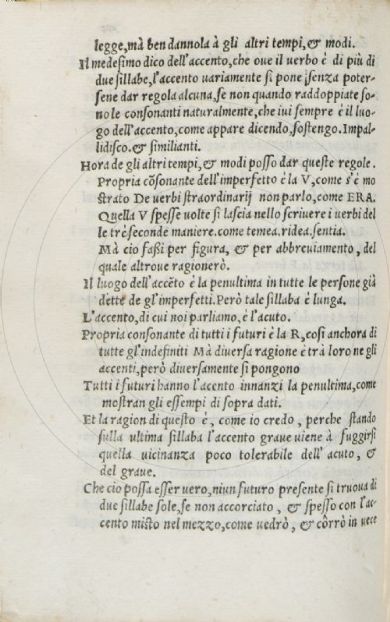 legge, mà ben dannola à gli altri tempi, & modi.
Il medesimo dico dell'accento, che oue il uerbo è di più di
due sillabe, l'accento uariamente si pone, senza poter-
sene dar regola alcuna, se non quando raddoppiate so-
no le consonanti naturalmente, che iui sempre è il luo-
go dell'accento, come appare dicendo. sostengo. Impal-
lidisco. & similianti.
Hora de gli altri tempi, & modi posso dar queste regole.
Propria cõsonante dell'imperfetto è la V, come s'è mo
strato De uerbi straordinarij non parlo, come ERA.
Quella V spesse uolte si lascia nello scriuere i uerbi del
le trè seconde maniere. come temea. ridea. sentia.
Mà ciò faßi per figura, & per abbreuiamento, del
quale altroue ragionerò.
Il luogo dell'accẽto è la penultima in tutte le persone già
dette de gl'imperfetti. Però tale sillaba è lunga.
L'accento, di cui noi parliamo, è l'acuto.
Propria consonante di tutti i futuri è la R, così anchora di
tutte gl'indefiniti Mà diuersa ragione è trà loro ne gli
accenti, però diuersamente si pongono
Tutti i futuri hanno l'acento innanzi la penultima, come
mostran gli essempi di sopra dati.
Et la ragion di questo è, come io credo, perche stando
sulla ultima sillaba l'accento graue uiene à fuggirsi
quella uicinanza poco tolerabile dell'acuto, &
del graue.
Che cio possa esser uero, niun futuro presente si truoua di
due sillabe sole, se non accorciato, & spesso con l'ac-
cento misto nel mezzo, come uedrò, & côrrò in uece